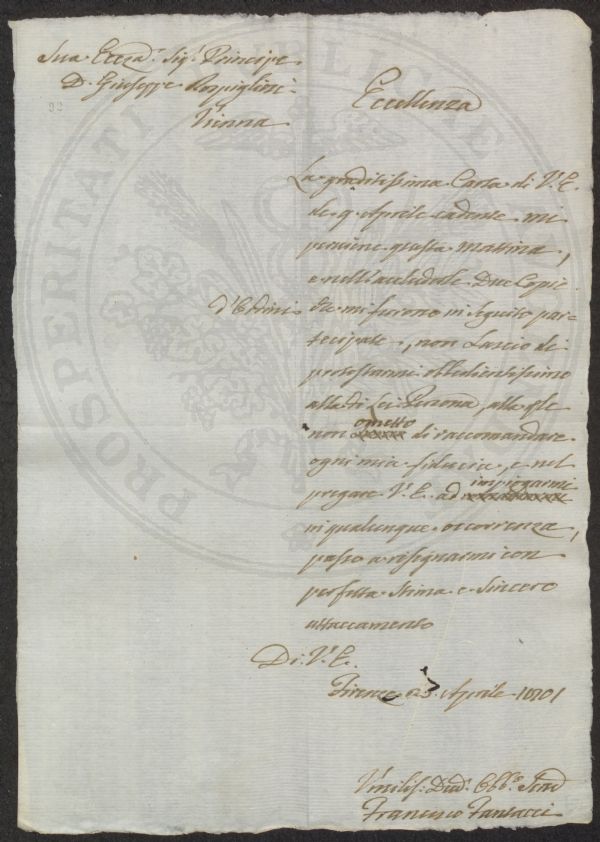 Sua Ecc.za Sig.r Principe
D. Giuseppe Rospigliosi
Vienna
Eccellenza
La graditissima Carta di V. E.
de 9 Aprile cadente mi
perviene questa mattina,
e nell'accluderle Due Copie
d'Editti che mi furono in seguito par=
tecipate, non Lascio di
protestarmi obbedientissimo
alla di Lei Persona, alla qle
non ometto di raccomandare
ogni mia fiducia, e nel
pregare V. E. ad impiegarmi
in qualunque occorrenza,
passo a rassegnarmi con
perfetta stima e sincero
attaccamento
Di V. E.
Firenze 23 Aprile 1801
Umilis. Dev. Obb. Serv
Francesco Fantacci
PROSPERITATI PUBLICAE